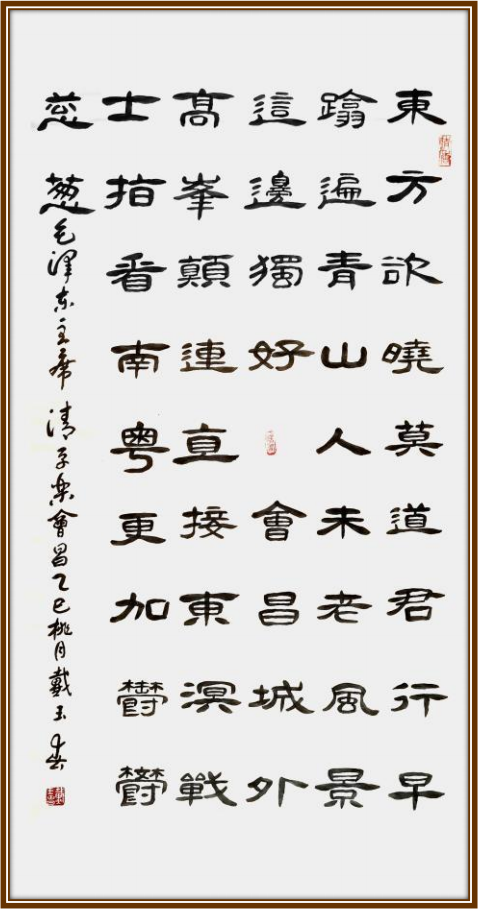 東方欲曉莫道君行早
踏遍青山人未老風景
這邊獨好 會昌城外
髙峯顛連直接東溟戰
士指看南粤更加鬱鬱
葱葱毛澤东主席 清平樂會昌乙巳桃月戴玉春